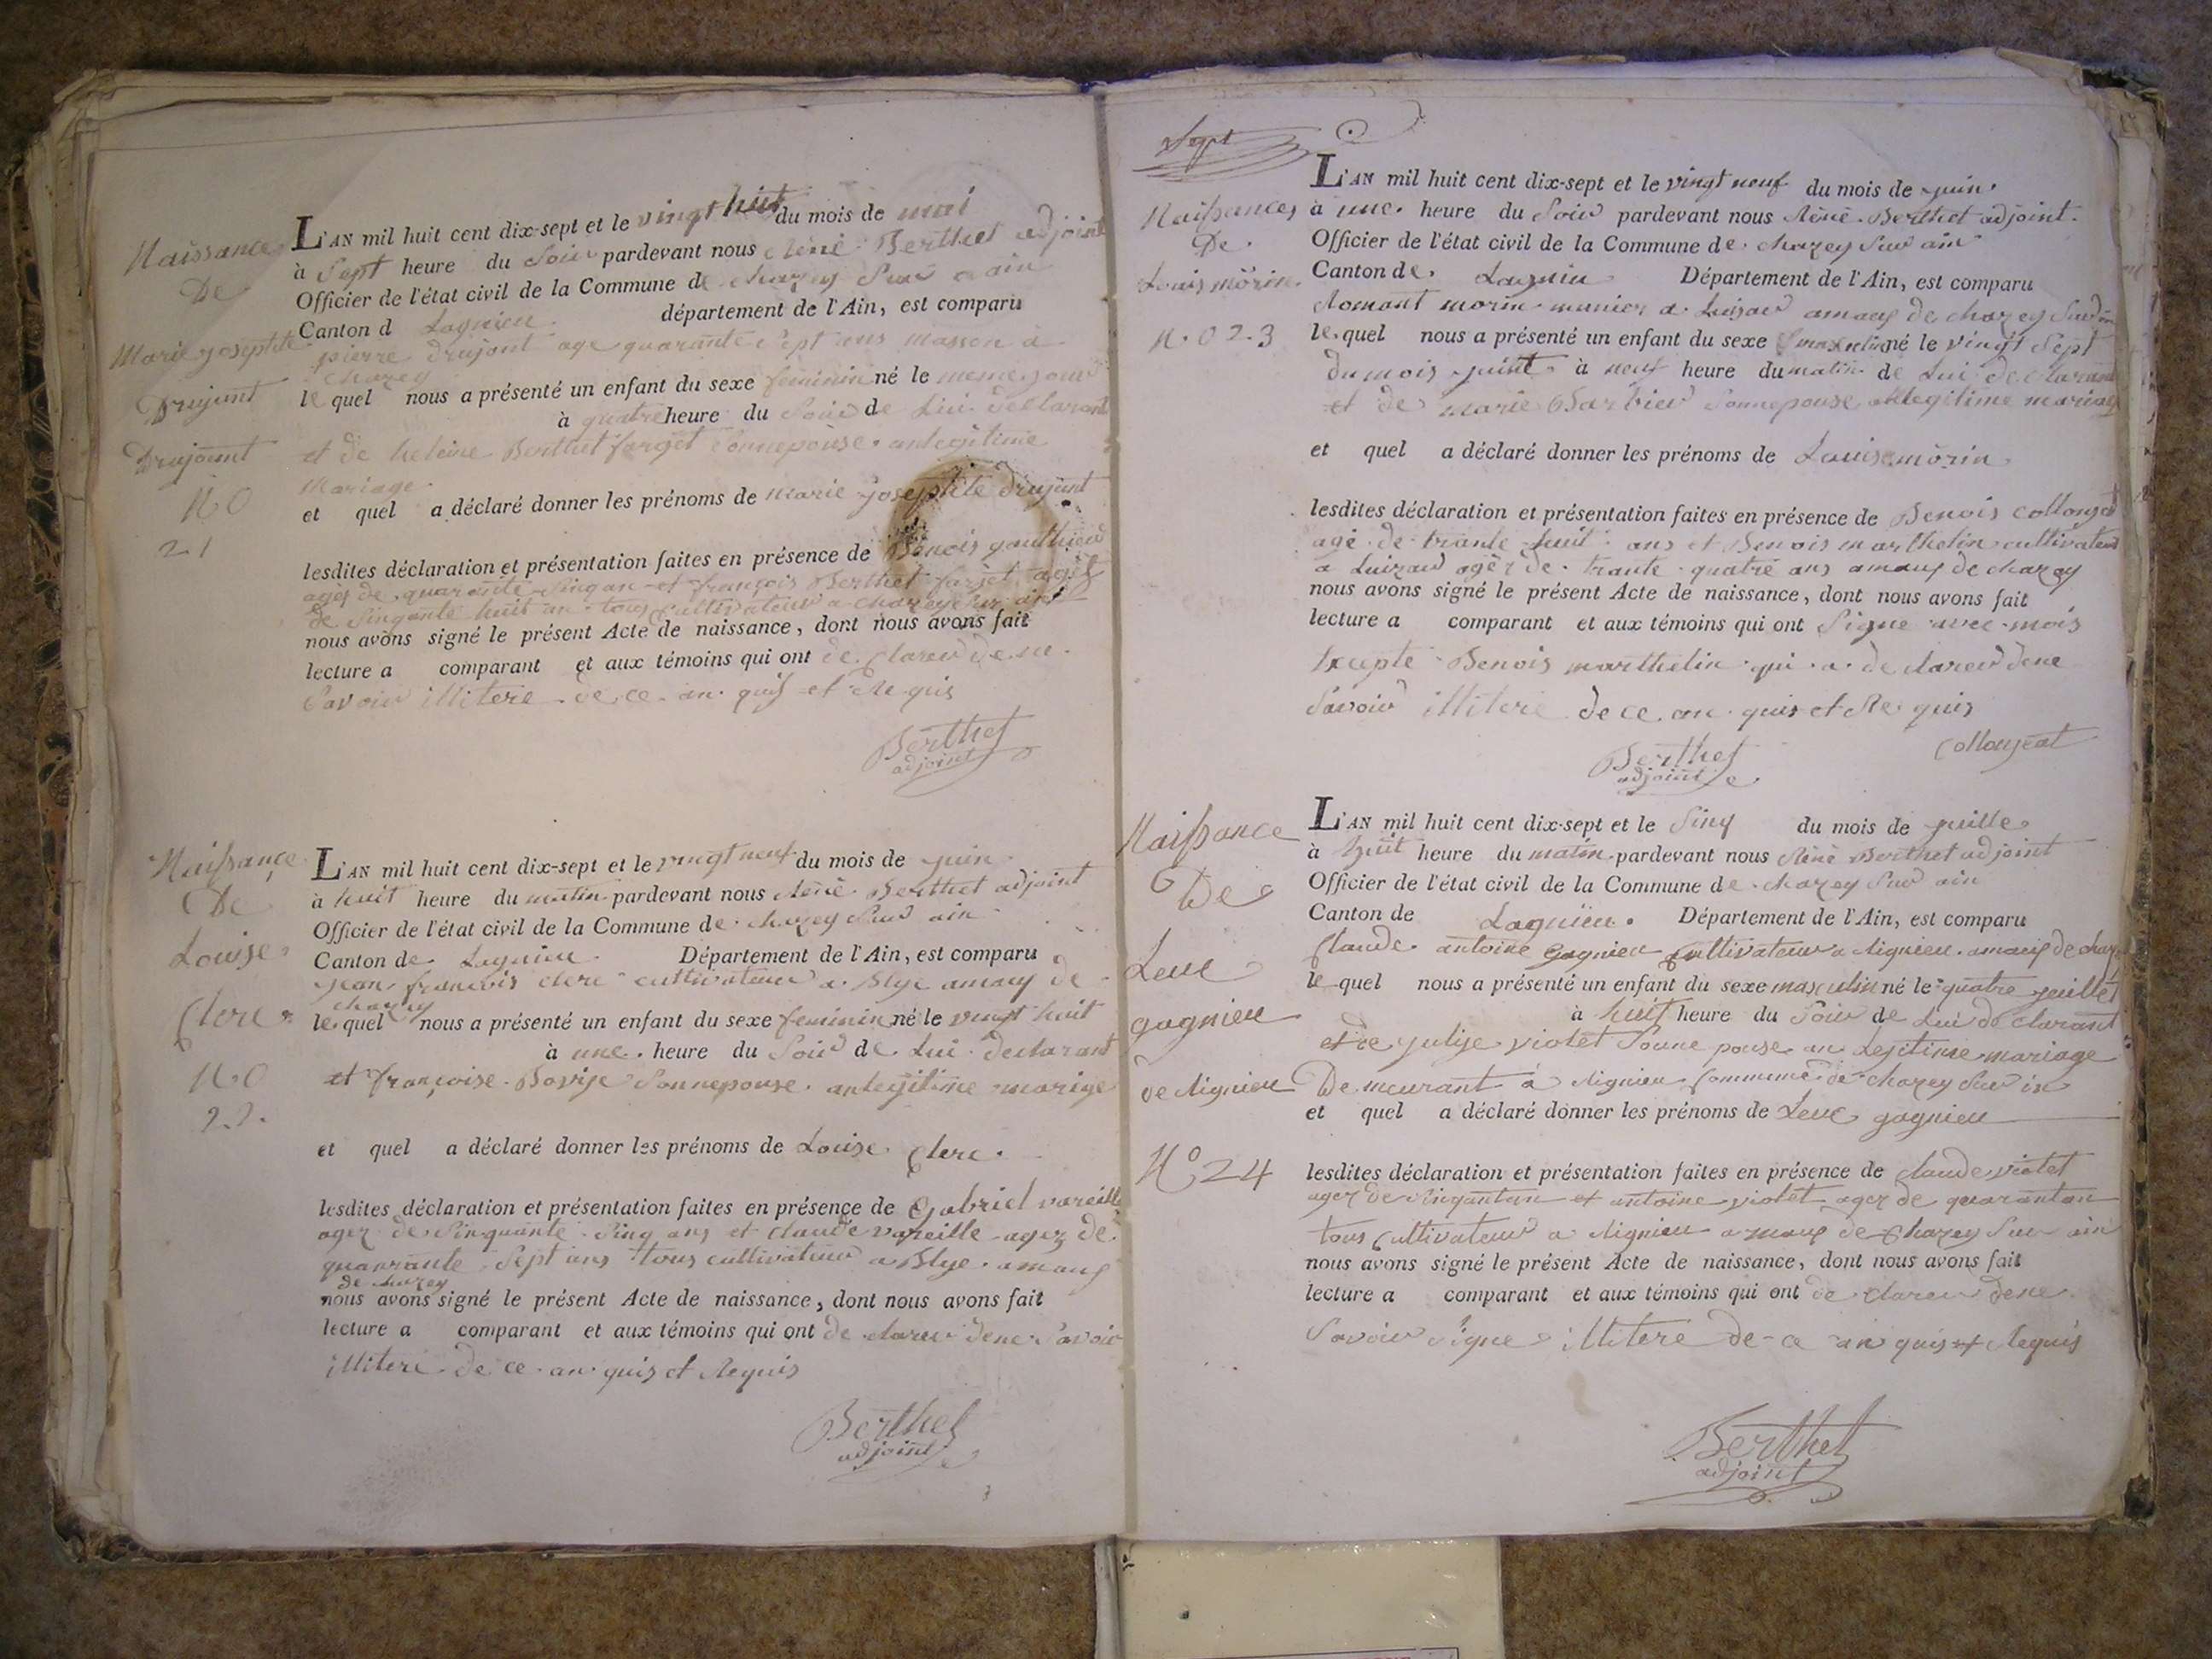 Naissance
De
Marie josephte
Drujont
Drujount
N.O
21
L'AN mil huit cent dix-sept et le vingt huit du mois de mai
à Sept heure du Soir pardevant nous Réné Berthet adjoint
Officier de l'état civil de la Commune de chazey Sur ain
Canton d Lagnieu département de l'Ain, est comparu
pierre drujont age quarante Sept ans masson à
chazey
le quel nous a présenté un enfant du sexe féminin né le meme jour
à quatre heure du Soir de Lui declarant
et de heleine Berthet farget Sonnepouse anlegitime
Mariage
et quel a déclaré donner les prénoms de marie josephte drujont
lesdites déclaration et présentation faites en présence de Benois gauthier
agés de quarante Singan et françois Berthet farjet agés
de Singante huit an tous cultivateur a chazey sur ain
nous avons signé le présent Acte de naissance, dont nous avons fait
lecture a comparant et aux témoins qui ont de clareu de ne
Savoir illitere de ce an quis et Requis
Berthet
adjoint
Naissance
De
Louise
Clerc
N.O
22.
L'AN mil huit cent dix-sept et le vingt neuf du mois de juin
à huit heure du matin pardevant nous Réné Berthet adjoint
Officier de l'état civil de la Commune de chazey Sur ain
Canton de Lagnieu Département de l'Ain, est comparu
jean françois clerc cultivateur a Blye amauy de
chazey
le quel nous a présenté un enfant du sexe feminin né le vingt huit
à une heure du Soir de Lui declarant
et françoise Bovije Sonnepouse anlegitime marige
et quel a déclaré donner les prénoms de Louise Clerc.
lesdites déclaration et présentation faites en présence de Gabriel vareille
agez de Sinquante Sinq ans et claude vareille agez de
quarante Sept ans tous cultivateur a Blye amauy
de chazey
nous avons signé le présent Acte de naissance, dont nous avons fait
lecture a comparant et aux témoins qui ont de clareu dene Savoir
illitere de ce an quis et Requis
Berthet
adjoint
Sept
Naissances
De
Louis mörin
N.O 23
L'AN mil huit cent dix-sept et le vingt neuf du mois de juin.
à une heure du Soir pardevant nous Réné Berthet adjoint.
Officier de l'état civil de la Commune de chazey Sur ain
Canton de Lagnieu Département de l'Ain, est comparu
Romant morin munier a Luizar amauy de chazey Sur in
le quel nous a présenté un enfant du sexe masculin né le vingt Sept
du mois juint à neuf heure du matin de Lui declarant
et de marie Barbier Sonnepouse anlegitime mariage
et quel a déclaré donner les prénoms de Louis mörin
lesdites déclaration et présentation faites en présence de Benois collonjat
agé de trante huit ans et Benois marthelin cultivateur
a Luizar agér de trante quatre ans amauy de chazey
nous avons signé le présent Acte de naissance, dont nous avons fait
lecture a comparant et aux témoins qui ont Signe avec mois
Excepte Benois marthelin qui a de clareu dene
Savoir illitere de ce an quis et Re quis
Berthet
adjoint
Collonjeat
Naissance
De
Leuc
gagnieu
de Rignieu
No 24
L'AN mil huit cent dix-sept et le Sinq du mois de juille
à huit heure du matin pardevant nous Réné Berthet adjoint
Officier de l'état civil de la Commune de chazey Sur ain
Canton de Lagnieu. Département de l'Ain, est comparu
Claude antoine gagnieu Cultivateur a Rignieu amauy de chazey
le quel nous a présenté un enfant du sexe masculin né le quatre jeuillet
à huit heure du Soir de Lui declarant
et de julije violet Sonne pouse an Lejitime mariage
De meurant a Rignieu Commune de chazey Sur in
et quel a déclaré donner les prénoms de Leuc gagnieu
lesdites déclaration et présentation faites en présence de claude violet
agez de Singantan et antoine violet agez de quarantan
tous Cultivateur a Rignieu amauy de Chazey Sur ain
nous avons signé le présent Acte de naissance, dont nous avons fait
lecture a comparant et aux témoins qui ont de clareu dene
Savoir Signe illitere de ce an quis et Requis
Berthet
adjoint